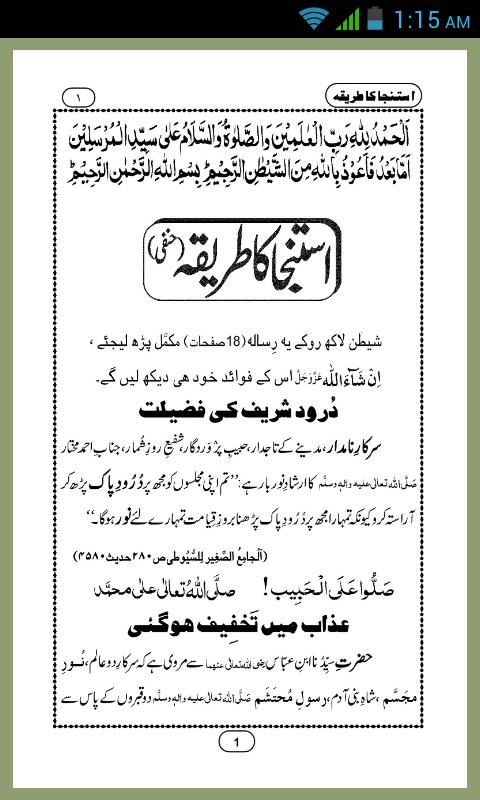 1:15 AM
استنجا کا طریقہ
۱
اَلْحَمْدُ لِلّٰہِ رَبِّ الْعٰلَمِیْنَ وَالصَّلٰوۃُ وَالسَّلَامُ عَلٰی سَیِّدِ الْمُرْسَلِیْنَ
اَمَّا بَعْدُ فَاَعُوْذُ بِاللّٰہِ مِنَ الشَّیْطٰنِ الرَّجِیْمِ ؕ بِسْمِ اللّٰہِ الرَّحْمٰنِ الرَّحِیْمِ ؕ
استنجا کا طریقہ (حنفی)
شیطٰن لاکھ روکے یہ رِسالہ (18صفحات) مکمَّل پڑھ لیجئے ،
اِنْ شَآءَ اللّٰہ عَزَّوَجَلَّ اس کے فوائد خود ھی دیکھ لیں گے۔
دُرود شریف کی فضیلت
سرکارِ نامدار، مدینے کے تاجدار، حبیبِ پَرْوَرْدگار، شفیعِ روزِ شُمار، جناب احمدِ مختار
صَلَّی اللہ تعالٰی علیہ واٰلہٖ وسلَّم کا ارشادِ نور بار ہے: ’’تم اپنی مجلسوں کو مجھ پر دُرُودِ پاک پڑھ کر
آراستہ کرو کیونکہ تمہارا مجھ پر دُرُودِ پاک پڑھنا بروزِ قِیامت تمہارے لئے نور ہو گا۔‘‘
(اَلْجامِعُ الصَّغِیر لِلسُّیُوطی ص ۲۸۰ حدیث ۴۵۸۰)
صَلُّوا عَلَی الْحَبِیب! صلَّی اللّٰہُ تعالٰی علٰی محمَّد
عذاب میں تَخفِیف ہو گئی
حضرتِ سیِّدُنا ابنِ عبّاس رضی اللہ تعالٰی عنہما سے مروی ہے کہ سرکارِ دو عالم، نُورِ
مجَسَّم ، شاہِ بنی آدم ، رسولِ مُحتَشَم صَلَّی اللہ تعالٰی علیہ واٰلہٖ وسلَّم دو قبروں کے پاس سے
1